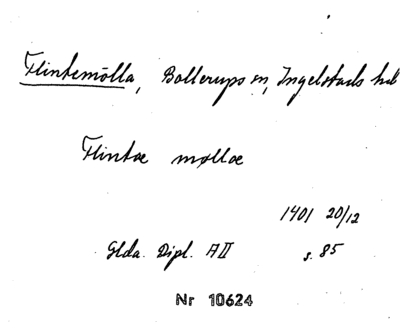 Flintemölla, Bollerups sn, Ingelstads hd
Flintæ møllæ
1401 20/12
Glda. Dipl. A II s. 85
Nr 10624